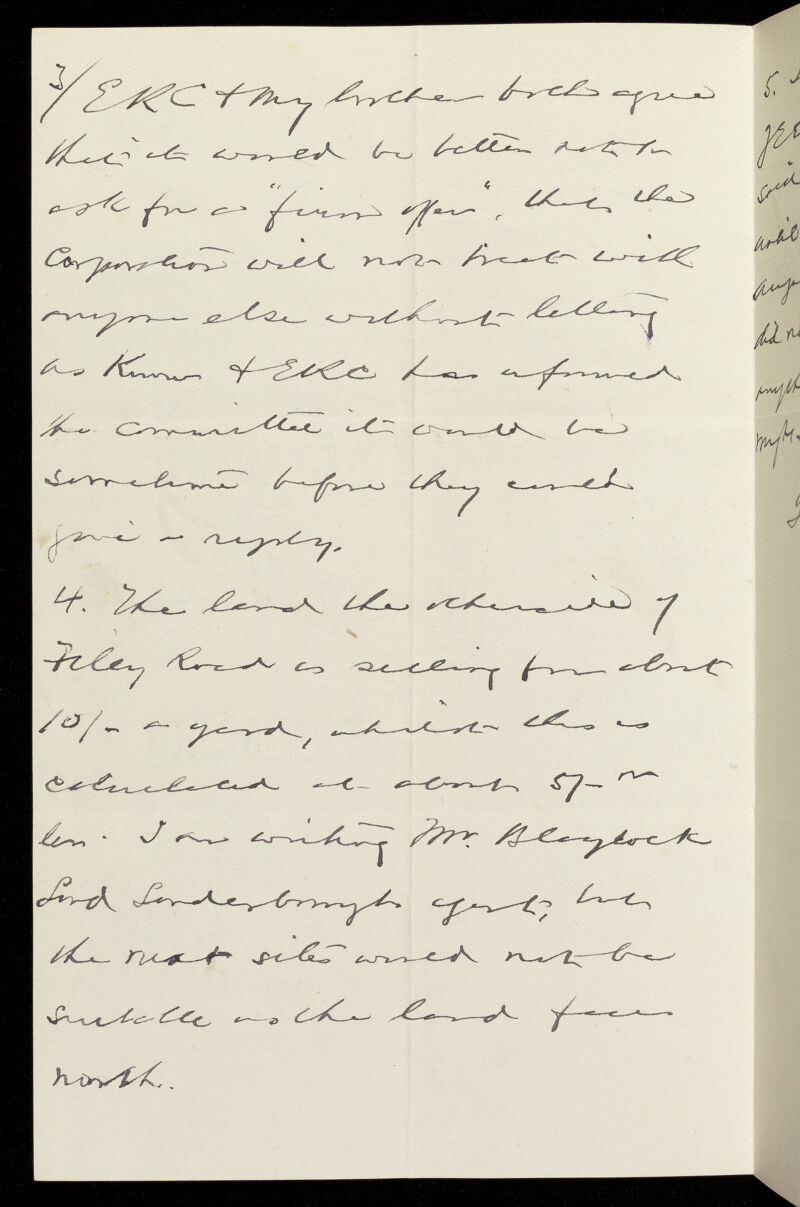 3/ ERC & my brother both agree
that it would be better not to
ask for a "firm offer", that the
Corporation will not treat with
anyone else without letting
us know & ERC has informed
the committee it would be
sometime before they could
give a reply.
4. The land the otherside of
Filey Road is selling for about
10/- a yard, whilst this is
calculated at about 5/- or
less. I am writing Mr. Blaylock
Lord Londesborough's agent, but
the next sites would not be
suitable as the land faces
north.
5.
said
did